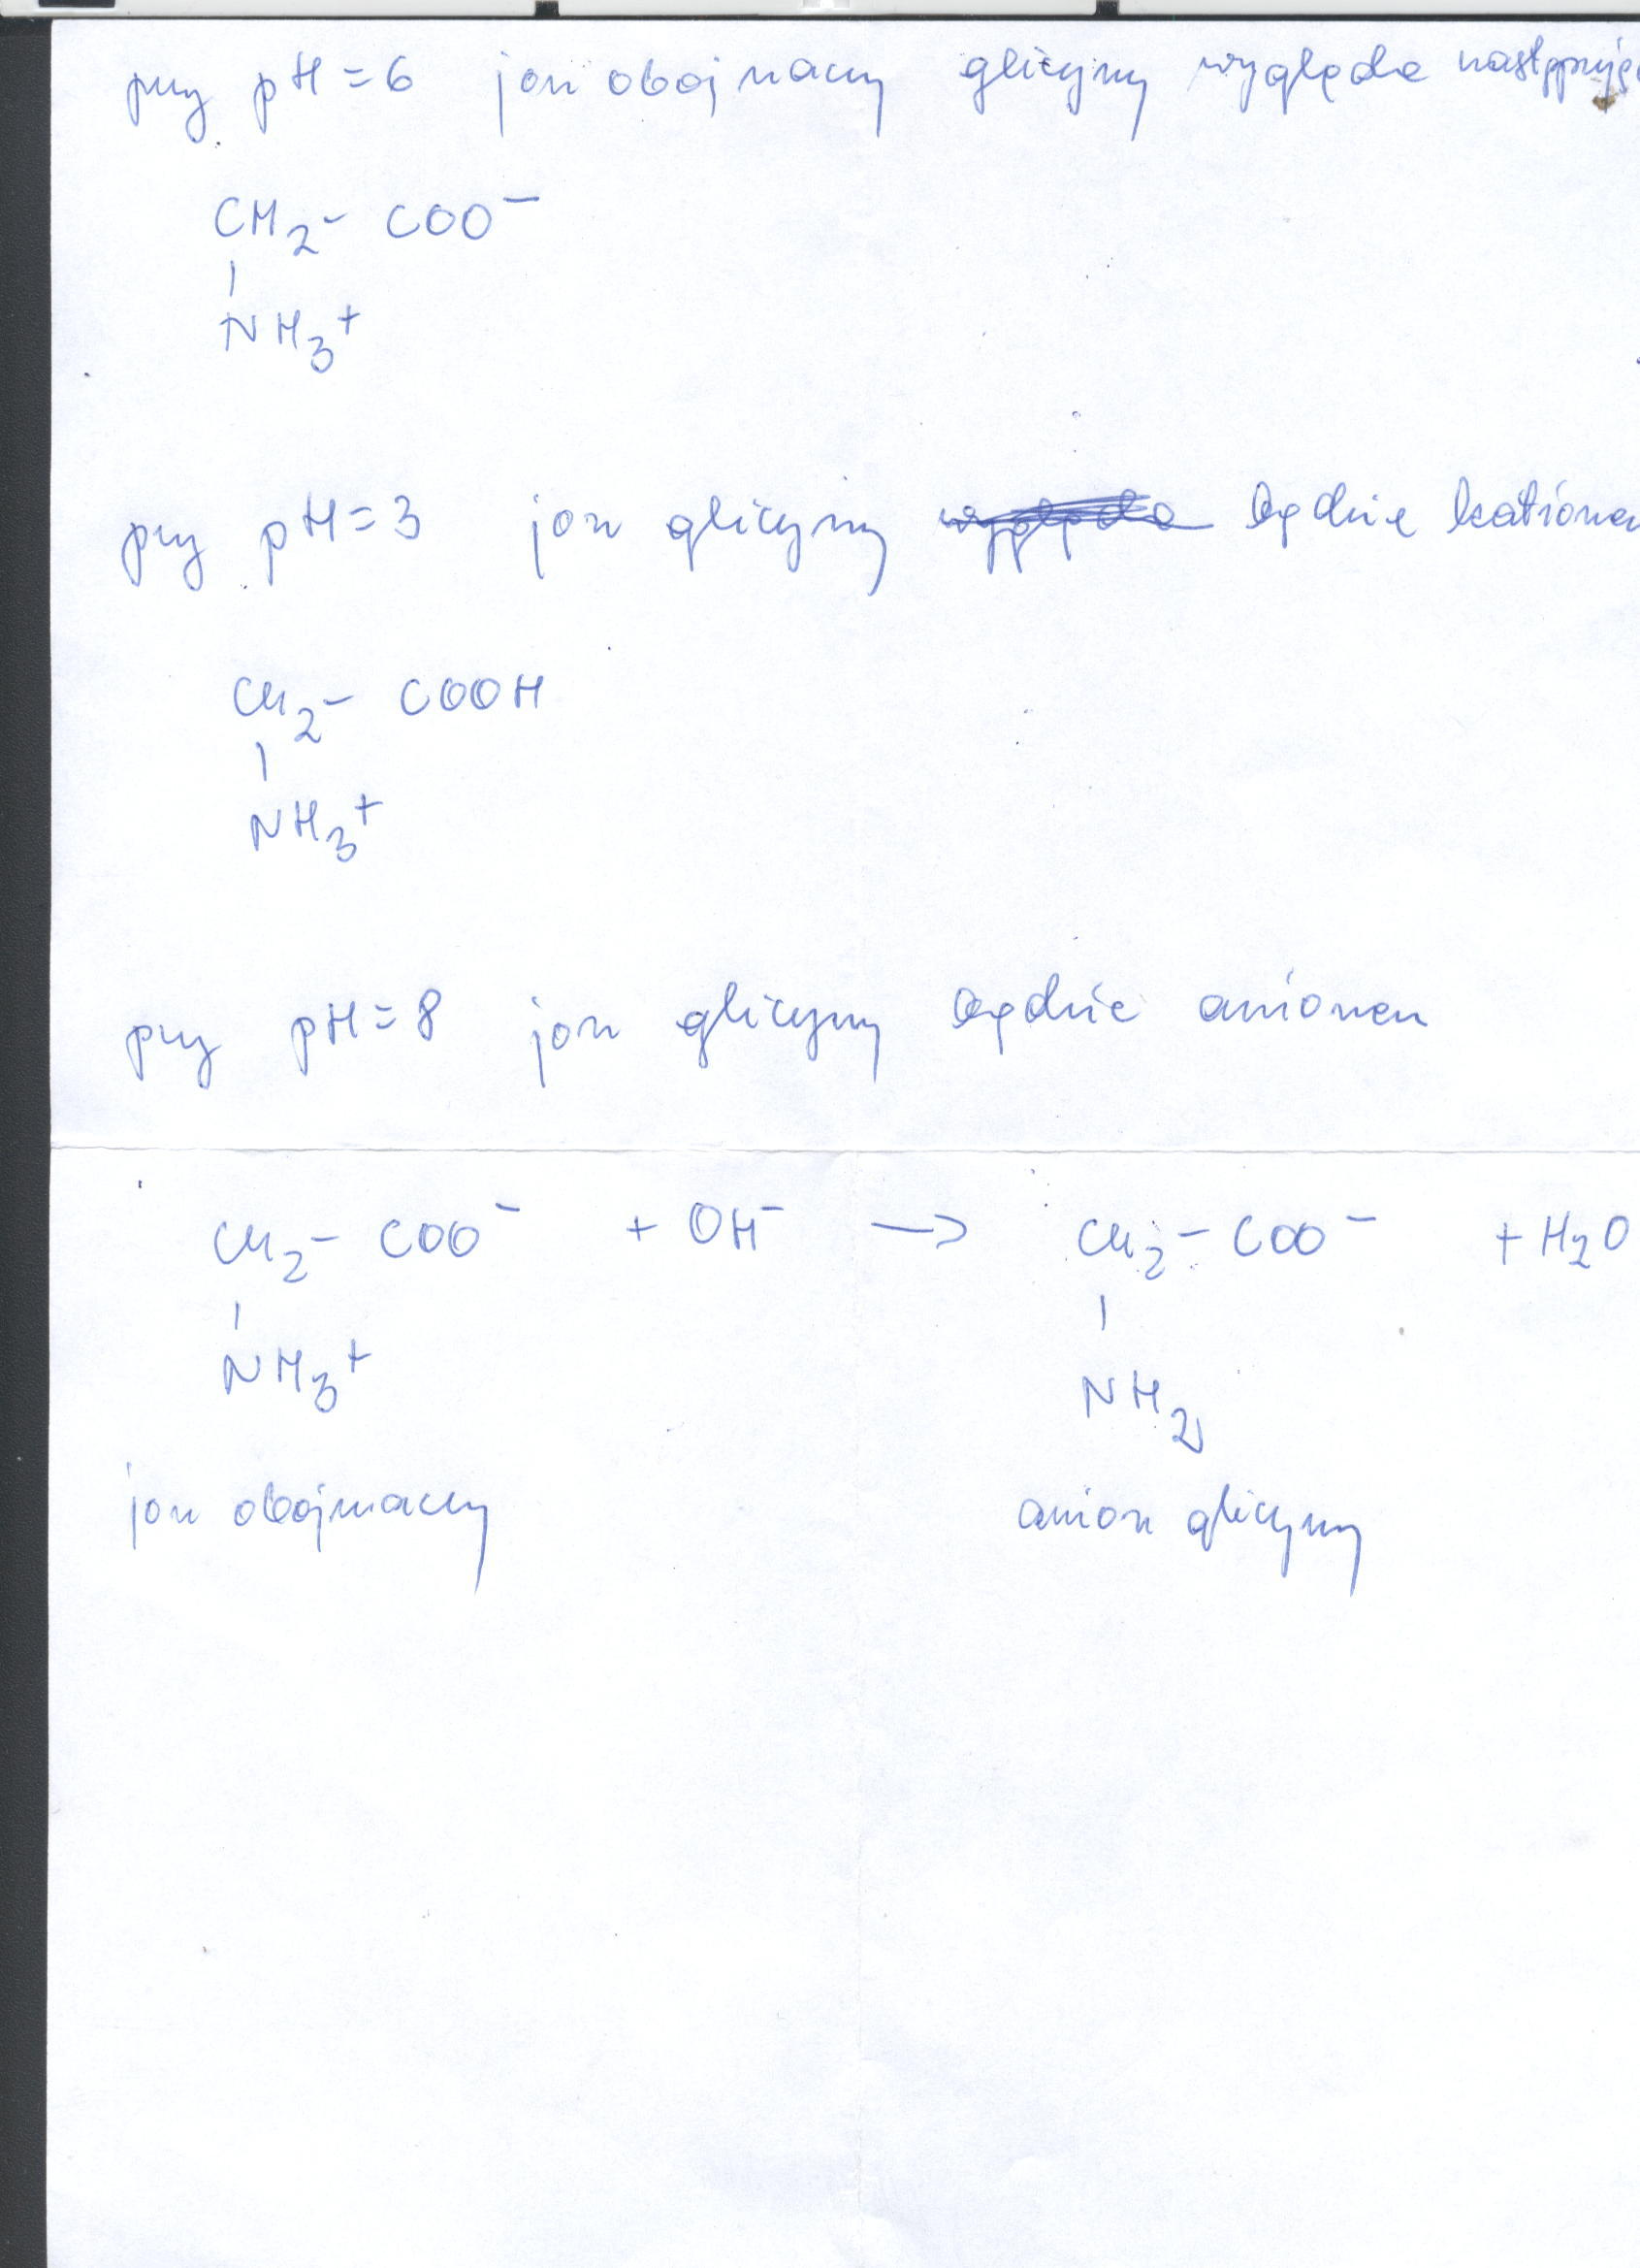 przy pH = 6 jon obojnaczy glicyny wygląda następując
CH2 - COO⁻
|
NH3⁺
przy pH = 3 jon glicyny wygląda będzie kationem
CH2 - COOH
|
NH3⁺
przy pH = 8 jon glicyny będzie anionem
CH2 - COO⁻ + OH⁻ → CH2 - COO⁻ + H2O
| |
NH3⁺ NH2
jon obojnaczy anion glicyny